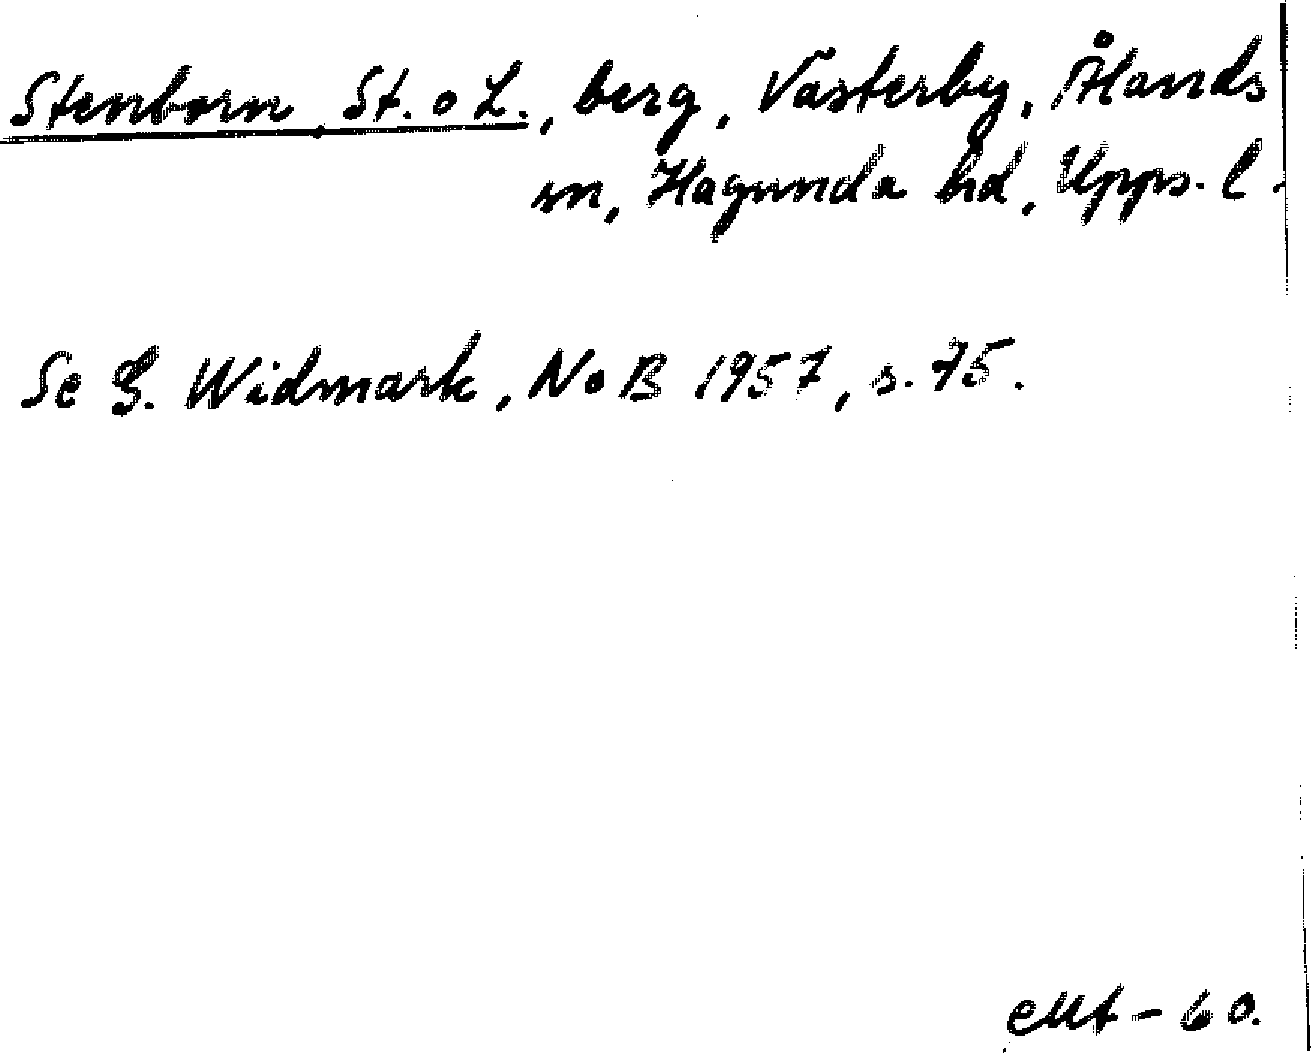 Stenborn, St. o L., berg, Västerby, Ålands
sn, Hagunda hd, Upps. l.
Se G. Widmark, NoB 1957, s. 75.
-60.